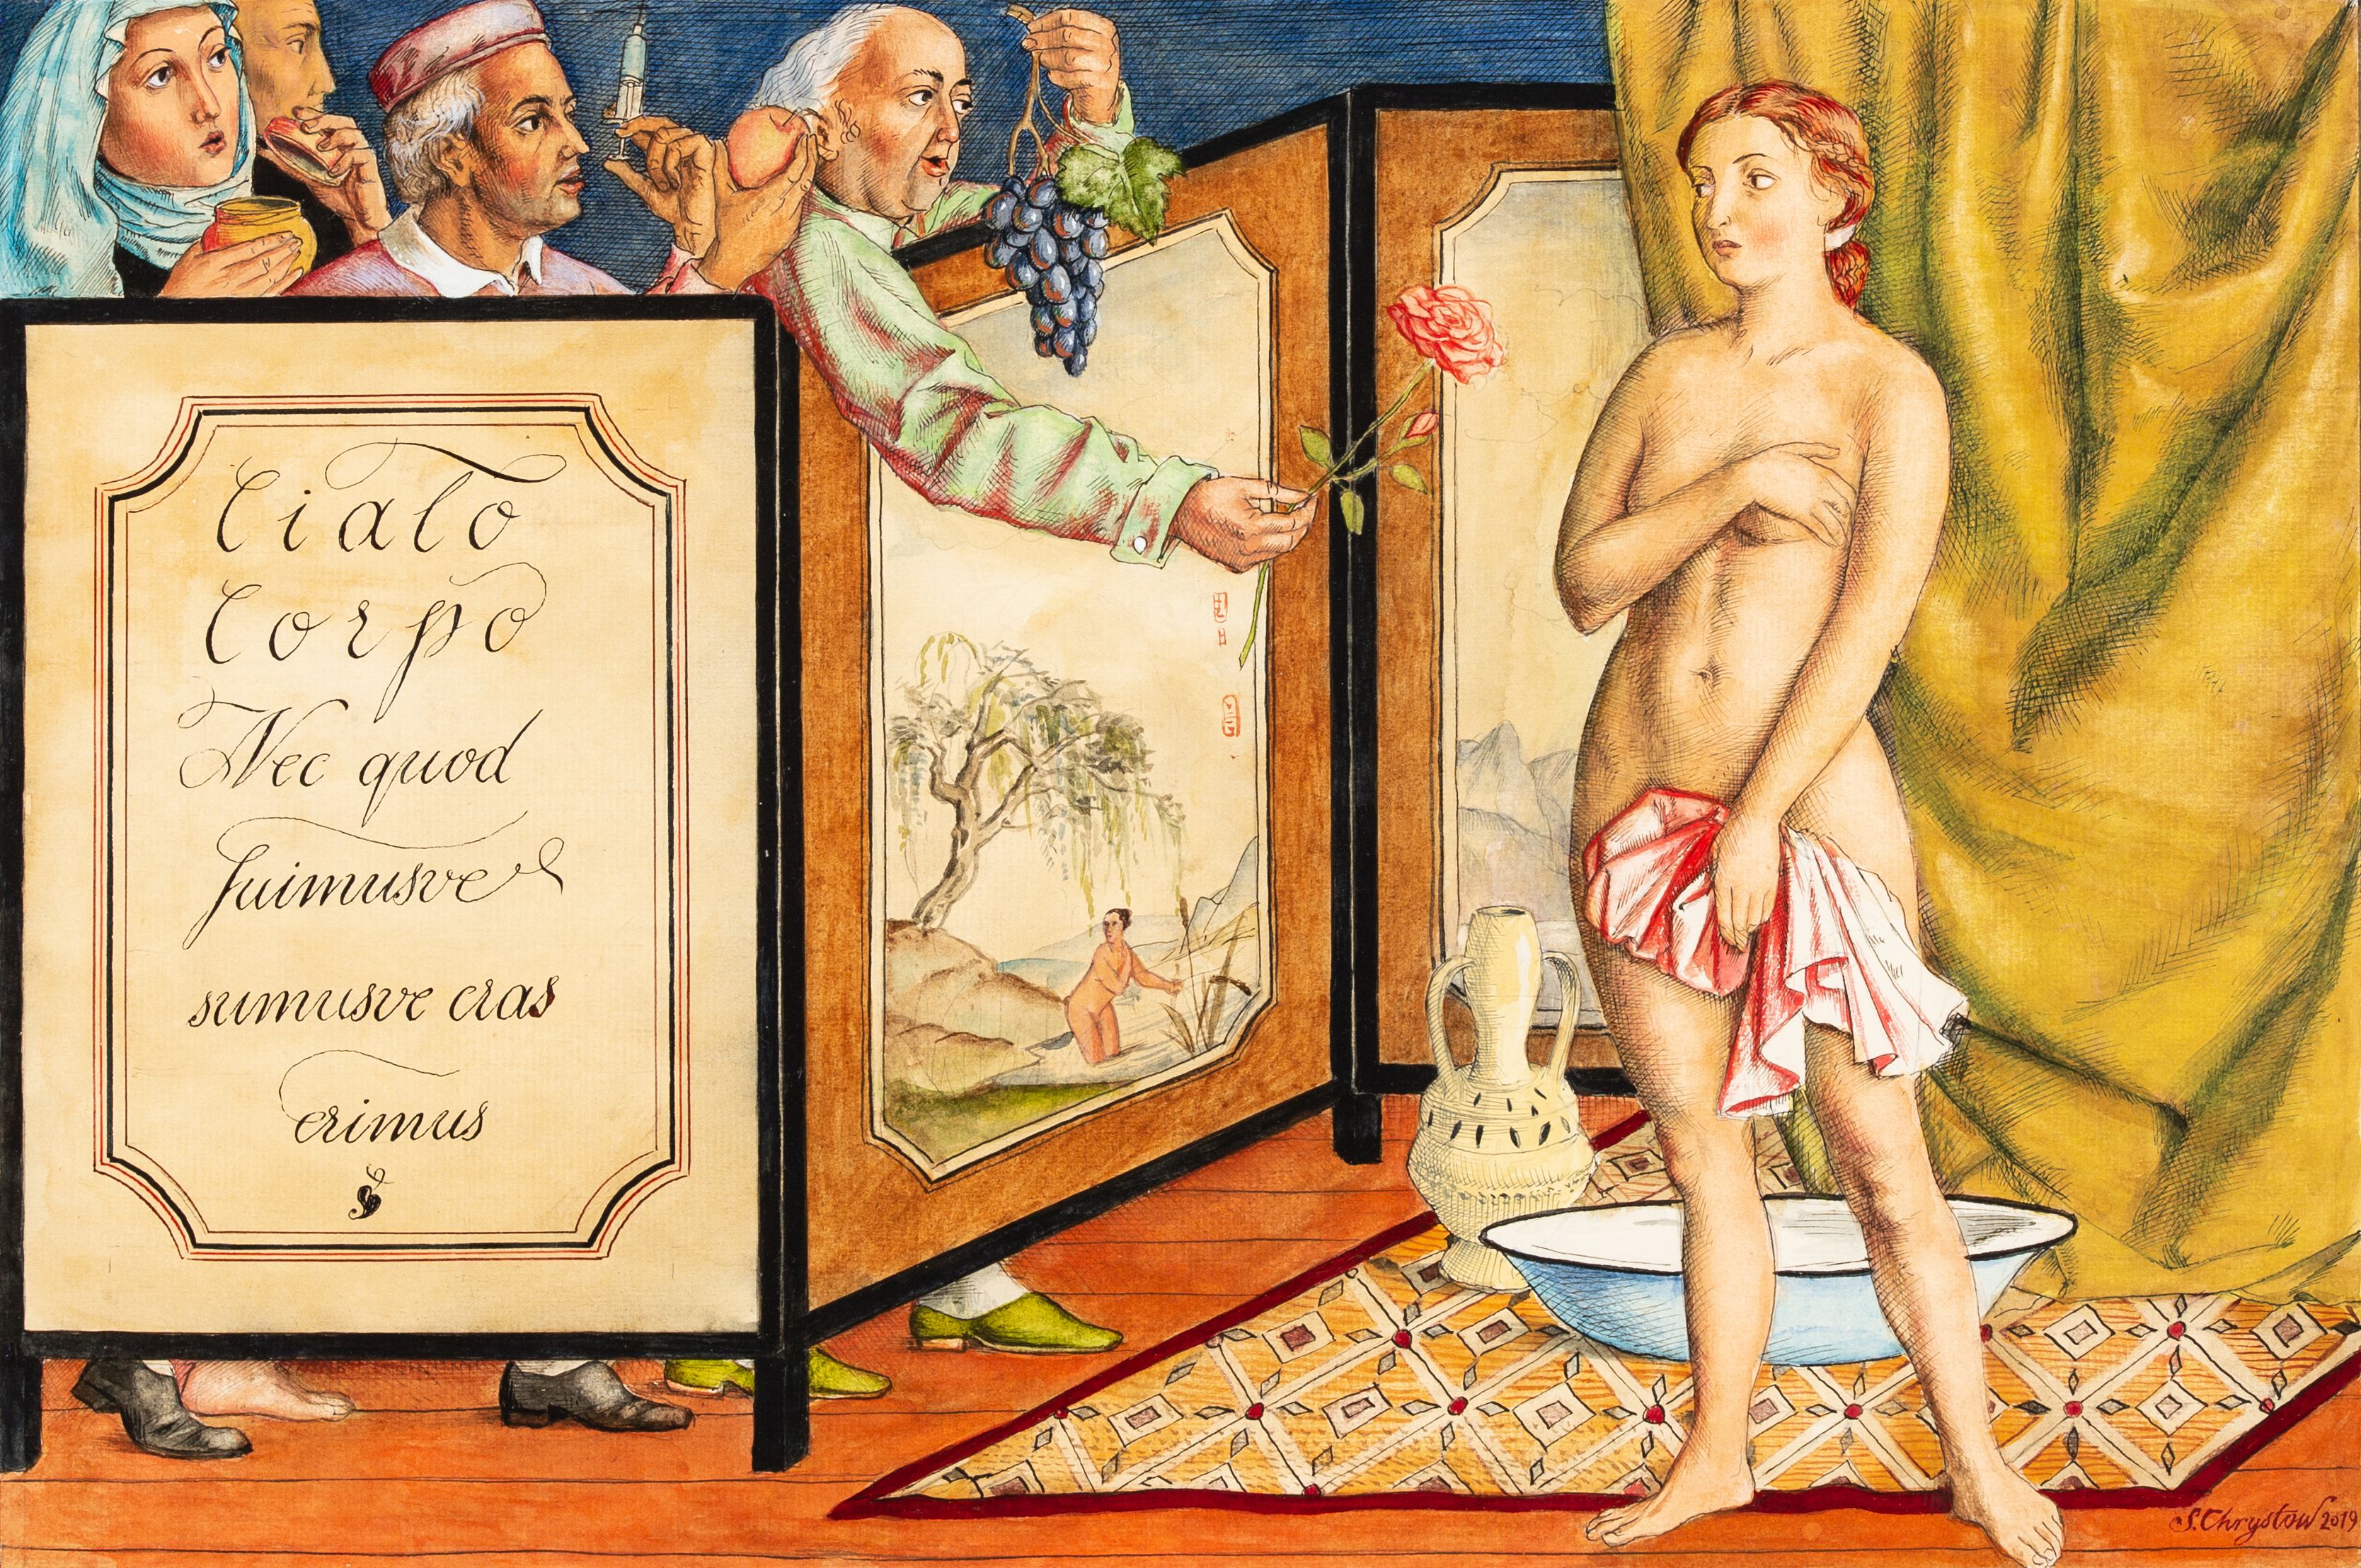 Ciało
Corpo
Nec quod
fuimusve
sumusve cras
erimus
S. Chrystow 2019